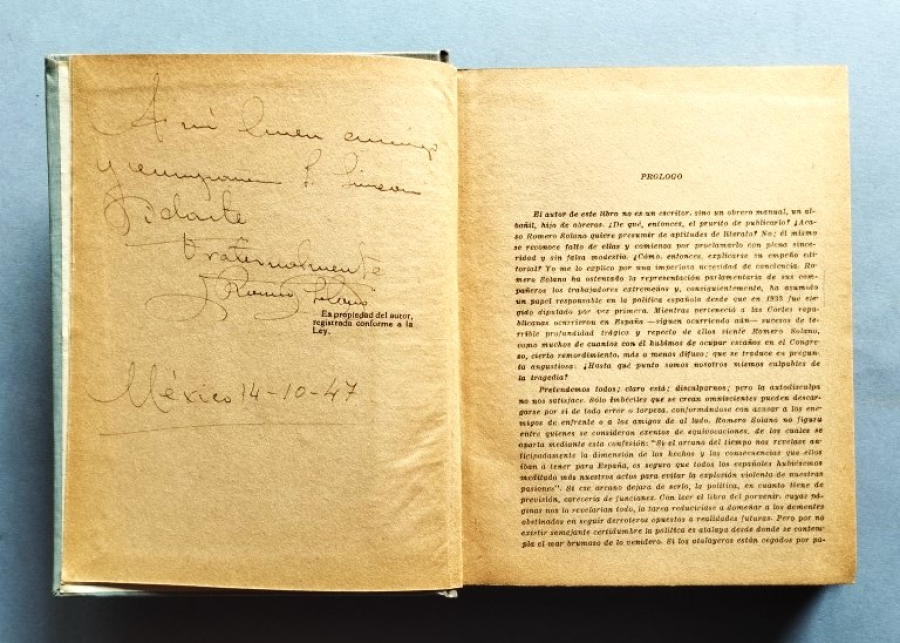 A mi buen amigo
y compañero S. Simeon
Vidarte
Fraternalmente
J Romero Solano
Es propiedad del autor,
registrada conforme a la
Ley.
México 14-10-47
PROLOGO
El autor de este libro no es un escritor, sino un obrero manual, un al-
bañil, hijo de obreros. ¿De qué, entonces, el prurito de publicarlo? ¿Aca-
so Romero Solano quiere presumir de aptitudes de literato? No; él mismo
se reconoce falto de ellas y comienza por proclamarlo con plena since-
ridad y sin falsa modestia. ¿Cómo, entonces, explicarse su empeño edi-
torial? Yo me lo explico por una imperiosa necesidad de conciencia. Ro-
mero Solano ha ostentado la representación parlamentaria de sus com-
pañeros los trabajadores extremeños y, consiguientemente, ha asumido
un papel responsable en la política española desde que en 1933 fue ele-
gido diputado por vez primera. Mientras perteneció a las Cortes repu-
blicanas ocurrieron en España —siguen ocurriendo aún— sucesos de te-
rrible profundidad trágica y repecto de ellos siente Romero Solano,
como muchos de cuantos con él hubimos de ocupar escaños en el Congre-
so, cierto remordimiento, más o menos difuso; que se traduce en pregun-
ta angustiosa: ¿Hasta qué punto somos nosotros mismos culpables de
la tragedia?
Pretendemos todos; claro está; disculparnos; pero la autodisculpa
no nos satisface. Sólo imbéciles que se crean omniscientes pueden descar-
garse por sí de todo error o torpeza, conformándose con acusar a los ene-
migos de enfrente o a los amigos de al lado. Romero Solano no figura
entre quienes se consideran exentos de equivocaciones, de los cuales se
aparta mediante esta confesión: "Si el arcano del tiempo nos revelase an-
ticipadamente la dimensión de los hechos y las consecuencias que ellos
iban a tener para España, es seguro que todos los españoles hubiésemos
meditado más nuestros actos para evitar la explosión violenta de nuestras
pasiones". Si ese arcano dejara de serlo, la política, en cuanto tiene de
previsión, carecería de funciones. Con leer el libro del porvenir, cuyas pá-
ginas nos lo revelarían todo, la tarea reduciríase a domeñar a los dementes
obstinados en seguir derroteros opuestos a realidades futuras. Pero por no
existir semejante certidumbre la política es atalaya desde donde se contem-
pla el mar brumoso de lo venidero. Si los atalayeros están cegados por pa-